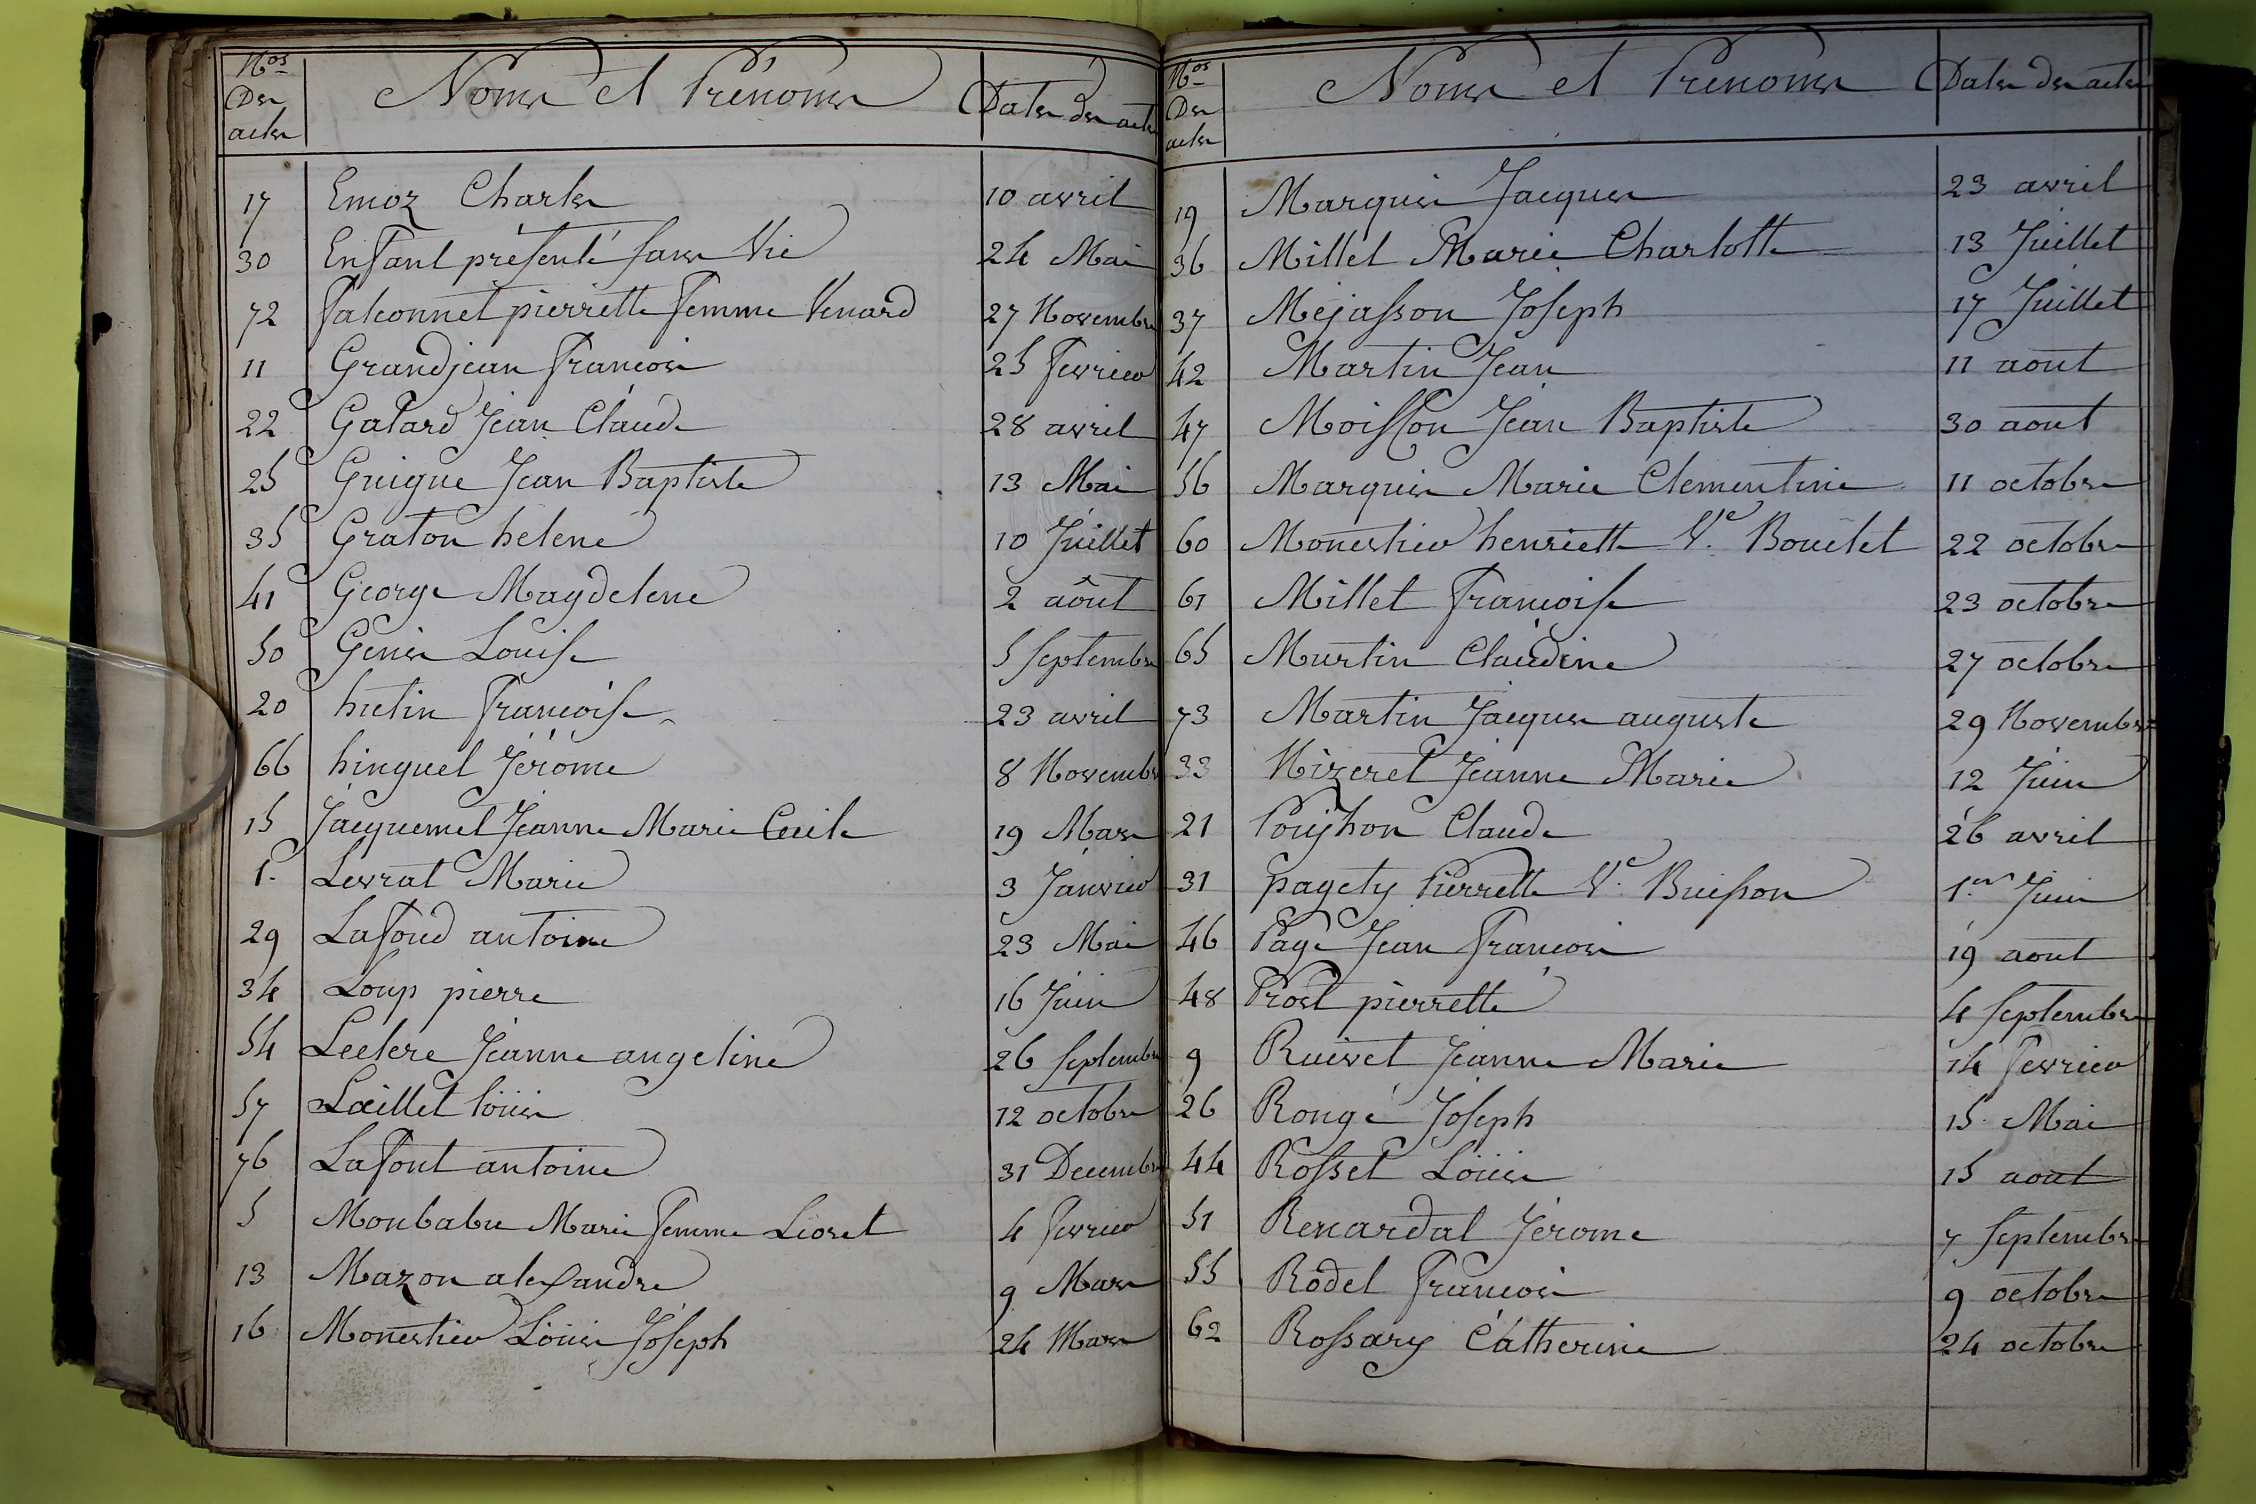 Nos Des actes Noms et Prénoms Dates des actes
17 Emoz Charles 10 avril
30 Enfant présenté sans Vie 24 Mai
72 Falconnet pierrette femme Venard 27 Novembre
11 Grandjean Francois 25 Fevrier
22 Galard Jean Claude 28 avril
25 Guigue Jean Baptiste 13 Mai
35 Graton helene 10 Juillet
41 George Magdelene 2 aôut
50 Génis Louise 5 Septembre
20 hutin Francoise 23 avril
66 hinguel Jérôme 8 Novembre
15 Jacquemet Jeanne Marie Cecile 19 Mars
1. Levrat Marie 3 Janvier
29 Lafond antoine 23 Mai
34 Loup pierre 16 Juin
54 Leclerc Jeanne angeline 26 Septembre
57 Lœillet louis 12 octobre
76 Lafont antoine 31 Decembre
5 Monbabu Marie femme Lioret 4 fevrier
13 Mazon alexandre 9 Mars
16 Monestier Louis Joseph 24 Mars
Nos Des actes Noms et Prenoms Dates des actes
19 Marquis Jacques 23 avril
36 Millet Marie Charlotte 13 Juillet
37 Mejasson Joseph 17 Juillet
42 Martin Jean 11 aout
47 Moisson Jean Baptiste 30 aout
56 Marquis Marie Clementine 11 octobre
60 Monestier henriette Ve Bouclet 22 octobre
61 Millet Francoise 23 octobre
65 Murtin Claudine 27 octobre
73 Martin Jacques auguste 29 Novembre
33 Nizeret Jeanne Marie 12 Juin
21 Poujhon Claude 26 avril
31 pagety Pierrette Ve Buisson 1.er Juin
46 Page Jean Francois 19 aout
48 Prost pierrette 4 Septembre
9 Ruivet Jeanne Marie 14 Fevrier
26 Rongé Joseph 15 Mai
44 Rosset Louis 15 aout
51 Renardat Jérome 7 Septembre
55 Rodet Francois 9 octobre
62 Rossary Catherine 24 octobre